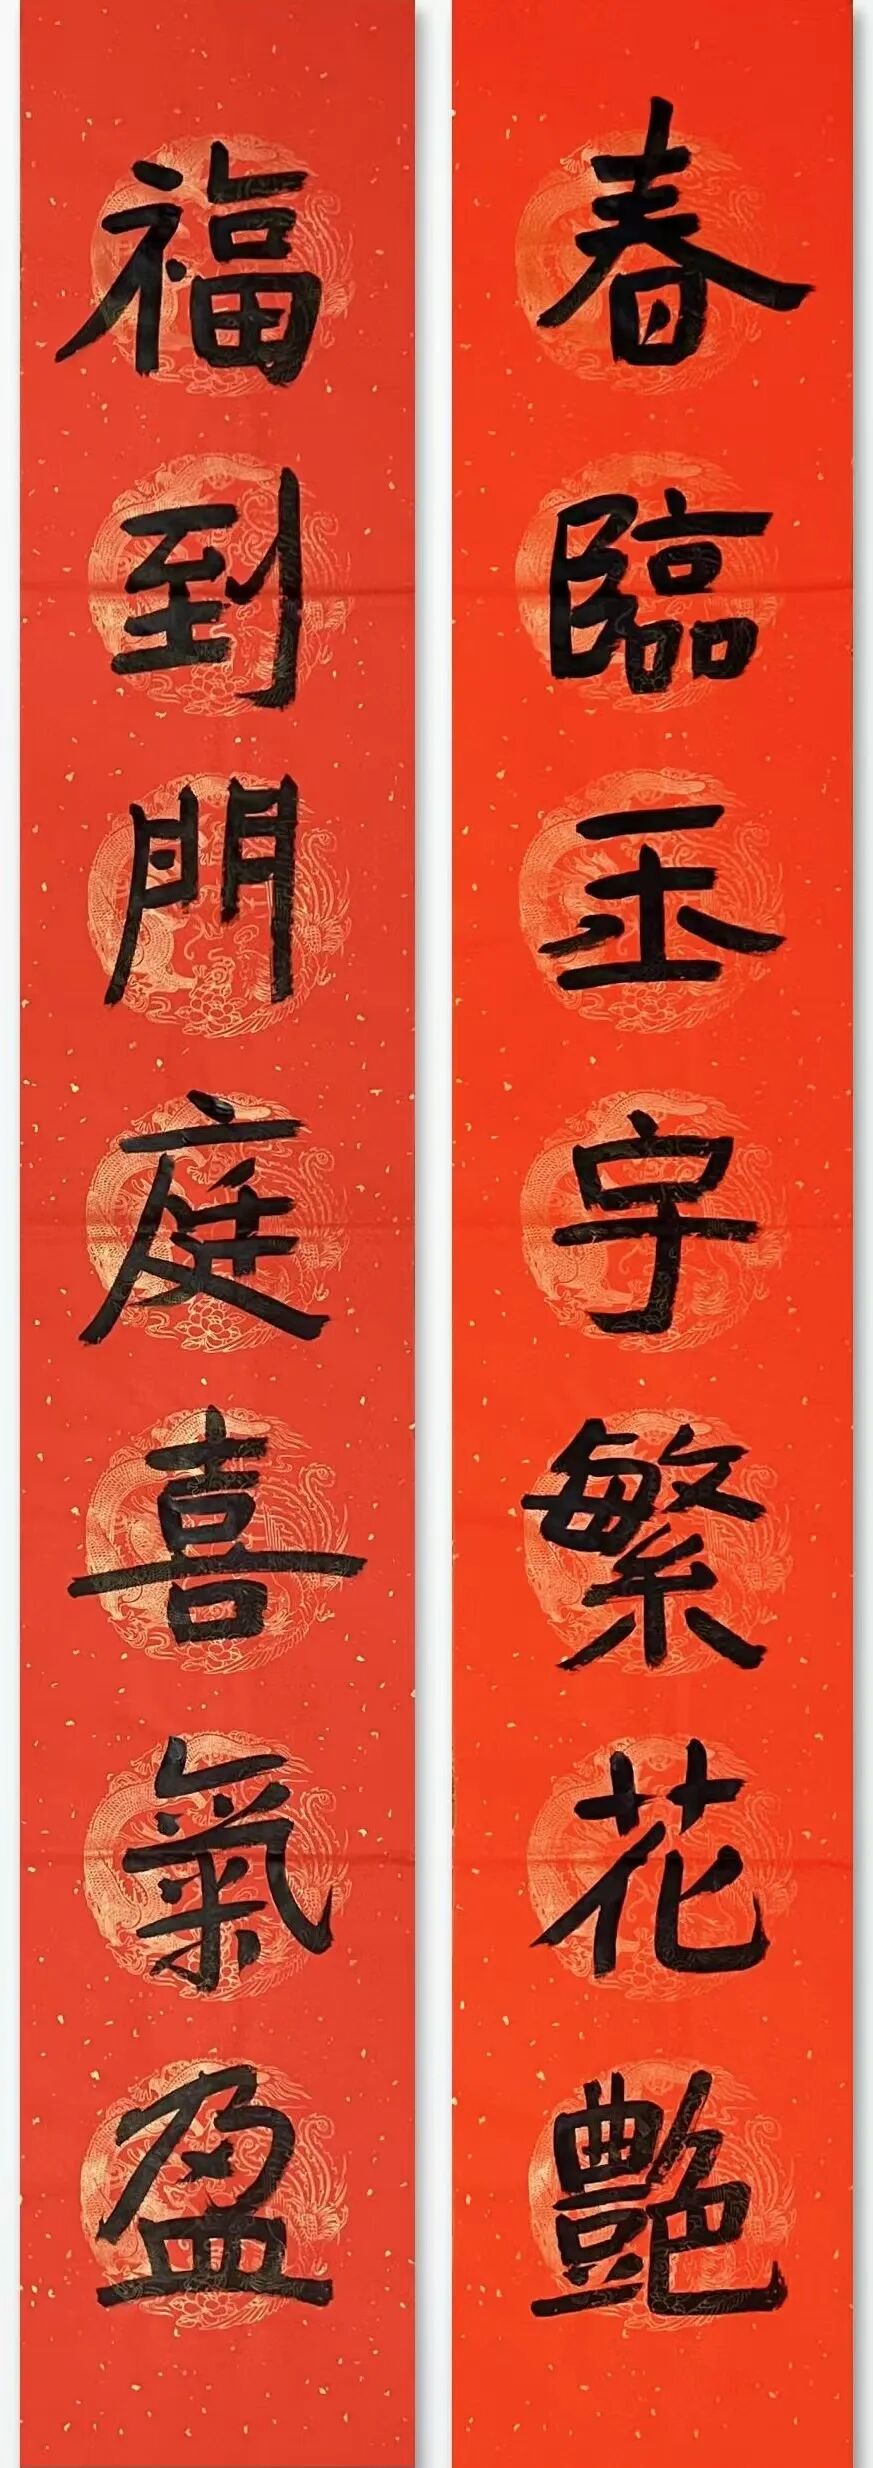 春臨玉宇繁花艷
福到門庭喜氣盈